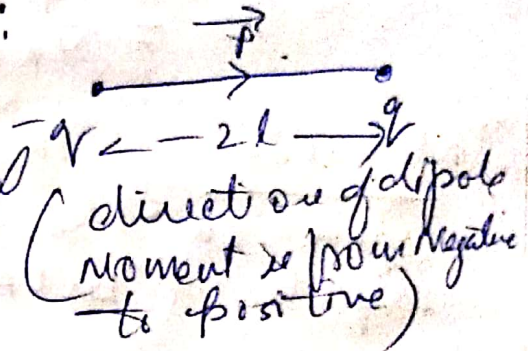 p
-q ← 2l → q
(direction of dipole
moment is from Negative
to positive)